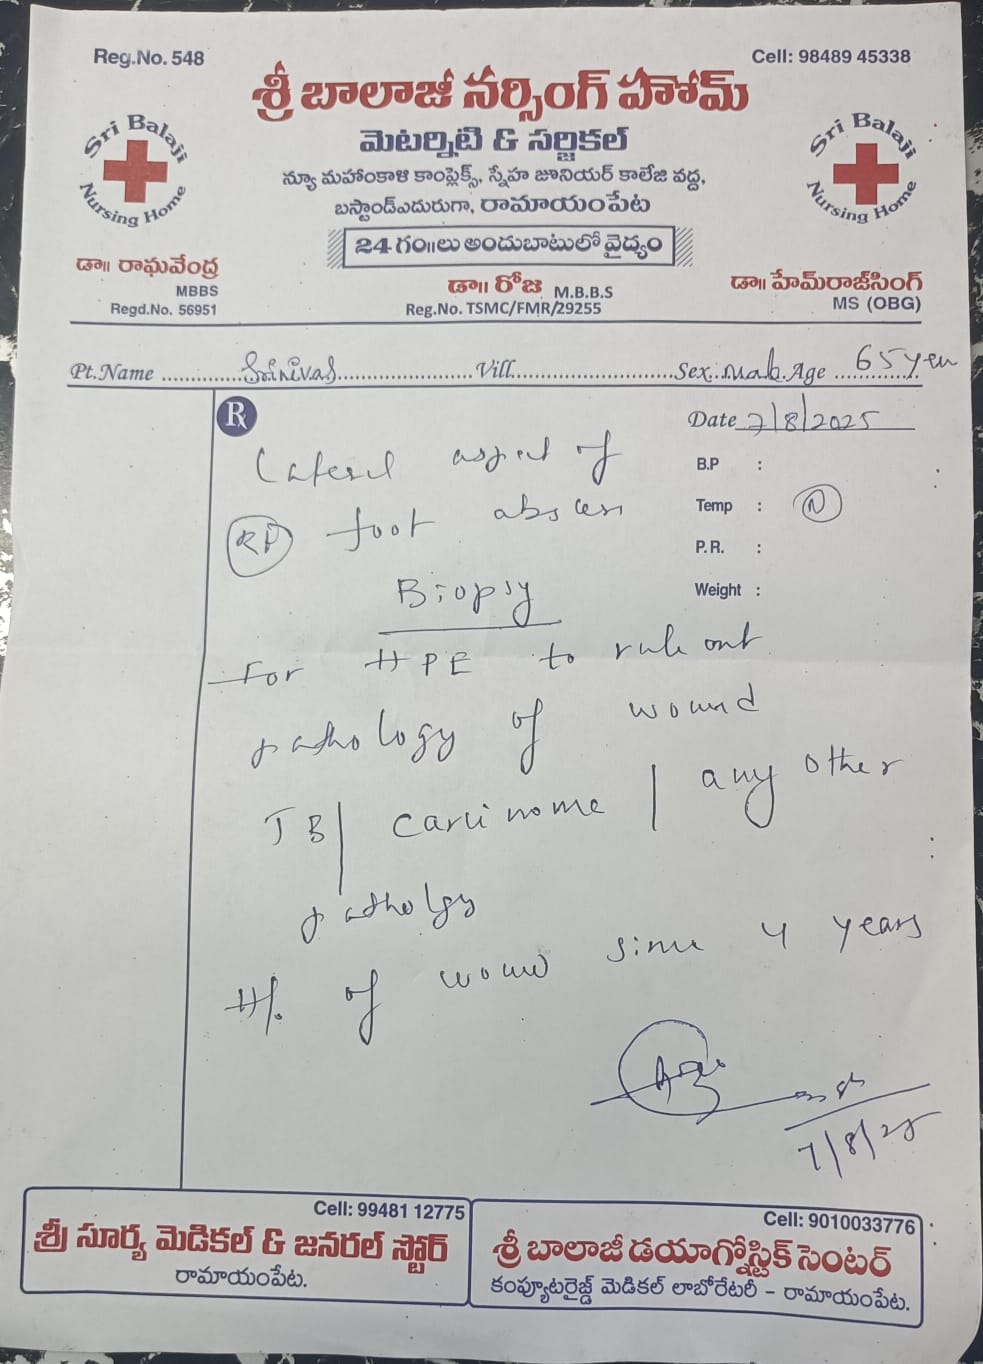 Reg.No. 548
Cell: 98489 45338
శ్రీ బాలాజీ నర్సింగ్ హోమ్
Sri Balaji Nursing Home
మెటర్నిటి & సర్జికల్
Sri Balaji Nursing Home
న్యూ మహాంకాళి కాంప్లెక్స్, స్నేహ జూనియర్ కాలేజి వద్ద,
బస్టాండ్ఎదురుగా, రామాయంపేట
24 గం॥లు అందుబాటులో వైద్యం
డా॥ రాఘవేంద్ర
MBBS
Regd.No. 56951
డా॥ రోజ M.B.B.S
Reg.No. TSMC/FMR/29255
డా॥ హేమ్‌రాజ్‌సింగ్
MS (OBG)
Pt.Name Srinivas Vill. Sex. male Age 65 yen
Rx
Date 7/8/2025
B.P :
Temp : N
P.R. :
Weight :
Lateral aspect of
Rt foot absces
Biopsy
For HPE to rule out
pathology of wound
TB/ carcinome / any other
patholgy
H/. of wound since 4 years
7/8/25
Cell: 99481 12775
శ్రీ సూర్య మెడికల్ & జనరల్ స్టోర్
రామాయంపేట.
Cell: 9010033776
శ్రీ బాలాజీ డయాగ్నోస్టిక్ సెంటర్
కంప్యూటరైజ్డ్ మెడికల్ లాబోరేటరీ – రామాయంపేట.